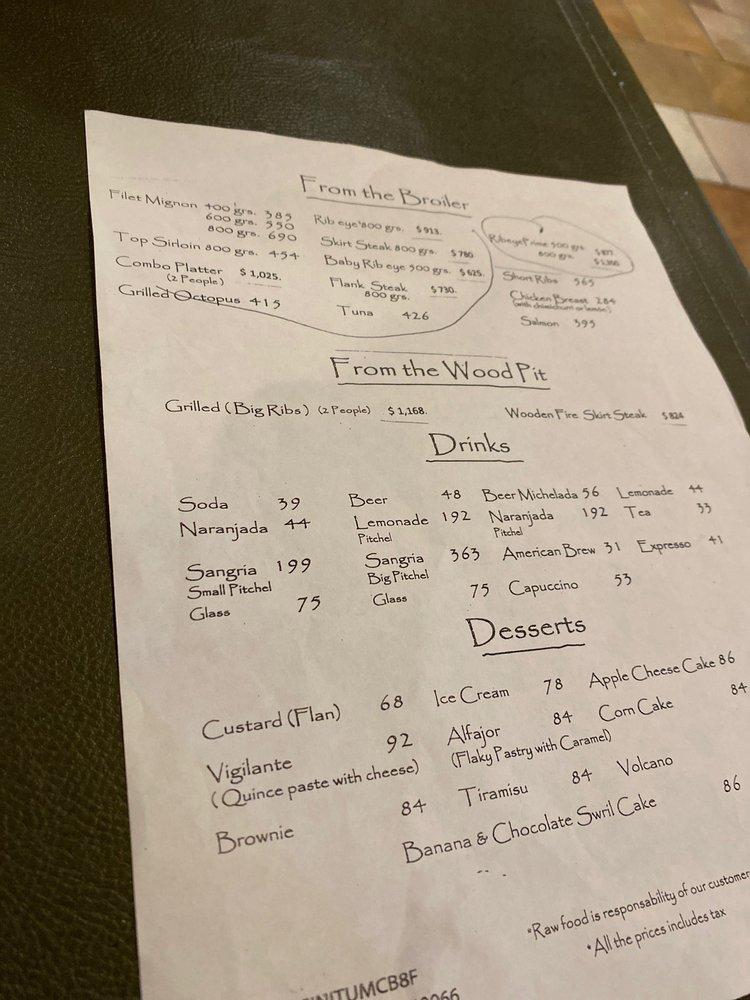 From the Broiler
Filet Mignon 400 grs. 385
600 grs. 550
800 grs. 690
Top Sirloin 800 grs. 454
Combo Platter $1,025.
(2 People)
Grilled Octopus 415
Rib eye 800 grs. $913.
Skirt Steak 800 grs. $780
Baby Rib eye 500 grs. $625.
Flank Steak $730.
800 grs.
Tuna 426
Ribeye Prime 500 grs $877
800 grs.
Short Ribs 565
Chicken Breast 284
(with chimichurri or lemon)
Salmon 395
From the Wood Pit
Grilled (Big Ribs) (2 People) $1,168.
Wooden Fire Skirt Steak $824
Drinks
Soda 39 Beer 48 Beer Michelada 56 Lemonade 44
Naranjada 44 Lemonade 192 Naranjada 192 Tea 33
Pitchel Pitchel
Sangria 199 Sangria 363 American Brew 31 Expresso 41
Small Pitchel Big Pitchel
Glass 75 Glass 75 Capuccino 53
Desserts
Custard (Flan) 68 Ice Cream 78 Apple Cheese Cake 86
Vigilante 92 Alfajor 84 Corn Cake 84
(Quince paste with cheese) (Flaky Pastry with Caramel)
Brownie 84 Tiramisu 84 Volcano
Banana & Chocolate Swril Cake 86
*Raw food is responsability of our customer
*All the prices includes tax